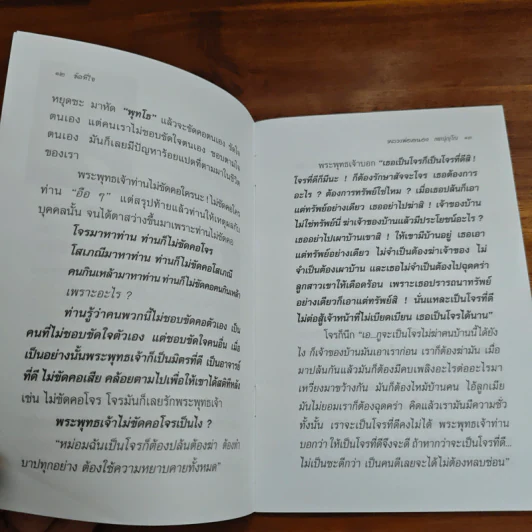 ๑๒ ขัดที่ใจ
หยุดซะ มาหัด "พุทโธ" แล้วจะขัดคอตนเอง ขัดใจ
ตนเอง แต่คนเราไม่ชอบขัดใจตนเอง ชอบตามใจ
ตนเอง มันก็เลยมีปัญหาร้อยแปดที่ตามมาในชีวิต
ของเรา
พระพุทธเจ้าท่านไม่ขัดคอใครนะ! ไม่ขัดคอใคร
ท่าน "อือ ๆ" แต่สรุปท้ายแล้วท่านให้เหตุผลกับ
บุคคลนั้น จนได้ตาสว่างขึ้นมาเพราะท่านไม่ขัดคอ
โจรมาหาท่าน ท่านก็ไม่ขัดคอโจร
โสเภณีมาหาท่าน ท่านก็ไม่ขัดคอโสเภณี
คนกินเหล้ามาหาท่าน ท่านก็ไม่ขัดคอคนกินเหล้า
เพราะอะไร ?
ท่านรู้ว่าคนพวกนี้ไม่ชอบขัดคอตัวเอง เป็น
คนที่ไม่ชอบขัดใจตัวเอง แต่ชอบขัดใจคนอื่น เมื่อ
เป็นอย่างนั้นพระพุทธเจ้าก็เป็นมิตรที่ดี เป็นอาจารย์
ที่ดี ไม่ขัดคอเสีย คล้อยตามไปเพื่อให้เขาได้สติทีหลัง
เช่น ไม่ขัดคอโจร โจรมันก็เลยรักพระพุทธเจ้า
พระพุทธเจ้าไม่ขัดคอโจรเป็นไง ?
"หม่อมฉันเป็นโจรก็ต้องปล้นต้องฆ่า ต้องทำ
บาปทุกอย่าง ต้องใช้ความหยาบคายทั้งหมด"
๑๓
พระพุทธเจ้าบอก "เธอเป็นโจรก็เป็นโจรที่ดีสิ !
โจรที่ดีก็มีนะ ! ก็ต้องรักษาสัจจะโจร เธอต้องการ
อะไร ? ต้องการทรัพย์ใช่ไหม ? เมื่อเธอปล้นก็เอา
แต่ทรัพย์อย่างเดียว เธออย่าไปฆ่าสิ ! เจ้าของบ้าน
ไม่ใช่ทรัพย์นี่ ฆ่าเจ้าของบ้านแล้วมีประโยชน์อะไร ?
เธออย่าไปเผาบ้านเขาสิ ! ให้เขามีบ้านอยู่ เธอเอา
แต่ทรัพย์อย่างเดียว ไม่จำเป็นต้องฆ่าเจ้าของ ไม่
จำเป็นต้องเผาบ้าน และเธอไม่จำเป็นต้องไปฉุดคร่า
ลูกสาวเขาให้เดือดร้อน เพราะเธอปรารถนาทรัพย์
อย่างเดียวก็เอาแต่ทรัพย์สิ ! นั่นแหละเป็นโจรที่ดี
ไม่ต่อสู้เจ้าหน้าที่ไม่เบียดเบียน เธอเป็นโจรได้นาน"
โจรก็นึก "เอ...กูจะเป็นโจรไม่ฆ่าคนบ้านนี้ได้ยัง
ไง ก็เจ้าของบ้านมันเอาเราก่อน เราก็ต้องฆ่ามัน เมื่อ
มาปล้นกันแล้วมันก็ต้องมีคบเพลิงอะไรต่ออะไรมา
เหวี่ยงมาขว้างกัน มันก็ต้องไหม้บ้านคน ไอ้ลูกเมีย
มันไม่ยอมเราก็ต้องฉุดคร่า คิดแล้วเรามันมีความชั่ว
ทั้งนั้น เราจะเป็นโจรที่ดีคงไม่ได้ พระพุทธเจ้าท่าน
บอกว่า ให้เป็นโจรที่ดีจึงจะดี ถ้าหากว่าจะเป็นโจรที่ดี...
ไม่เป็นซะดีกว่า เป็นคนดีเลยจะได้ไม่ต้องหลบซ่อน"